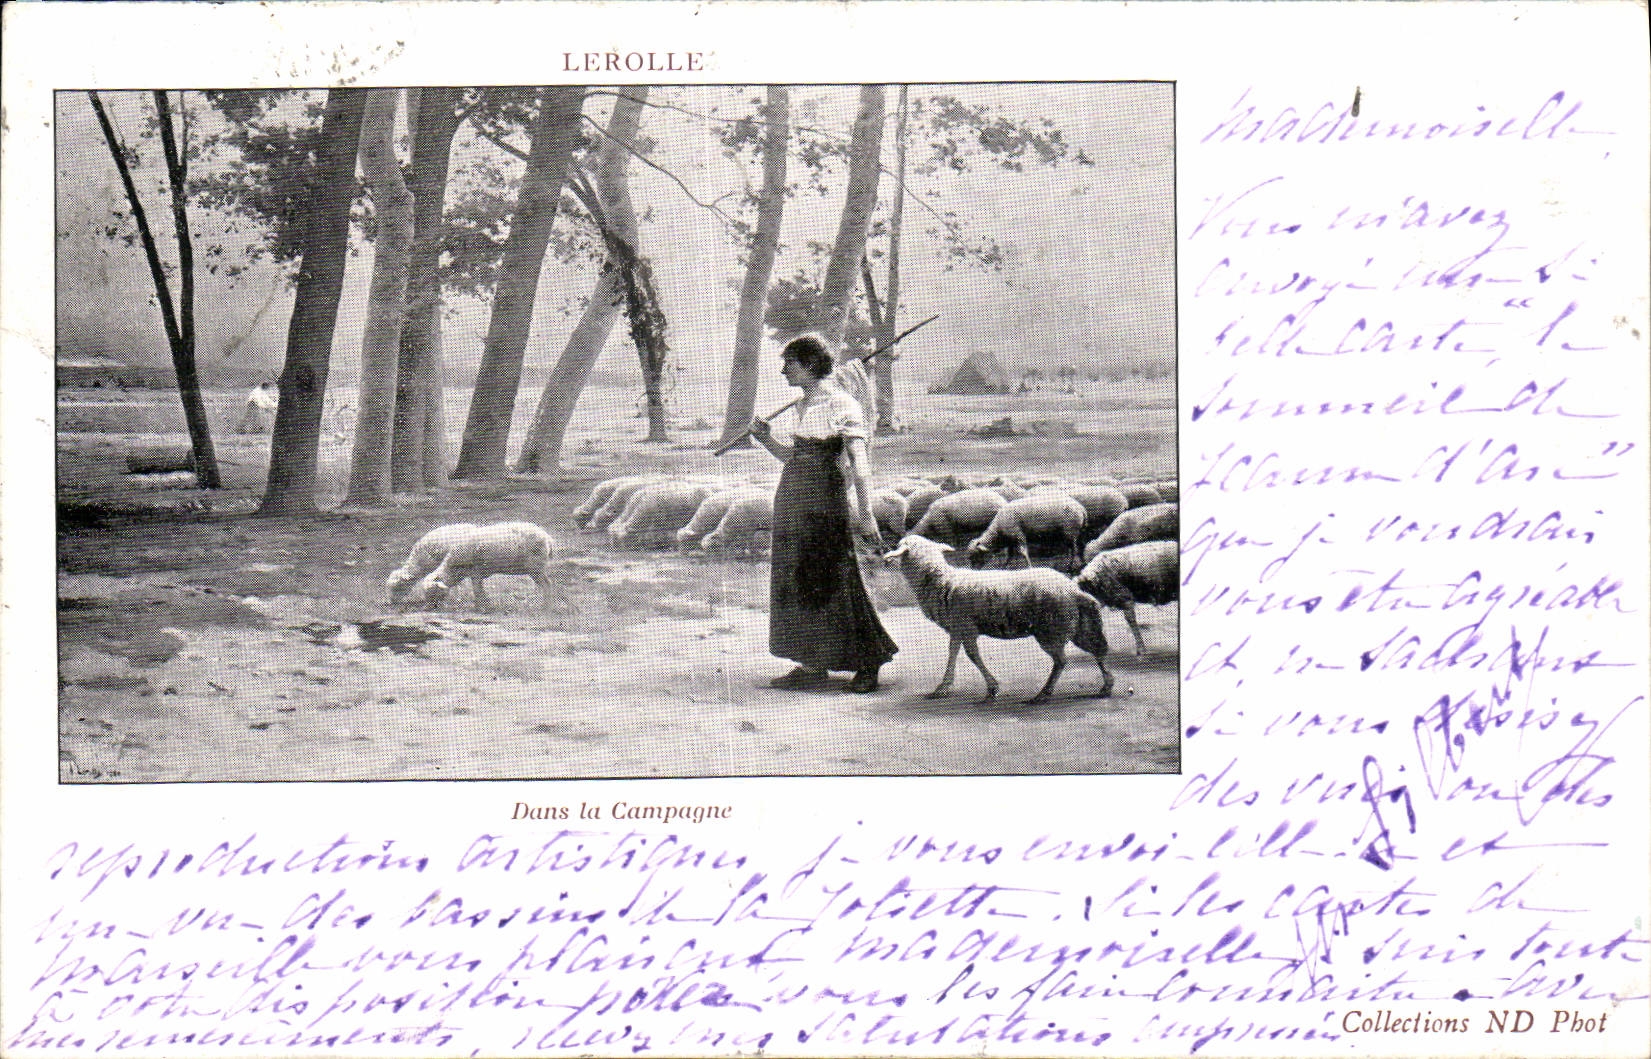 LEROLLE
Mademoiselle,
Vous m'avez
envoyé une si
belle carte, "le
sommeil de
Jeanne d'Arc"
que je voudrais
vous être agréable
et, ne sachant
si vous désirez
des vues ou des
Dans la Campagne
reproductions artistiques, je vous envoie celle-ci et
une vue des bassins de la Joliette. Si les cartes de
Marseille vous plaisent, Mademoiselle, suis toute
à votre disposition pour vous les faire connaître. Avec
mes remerciements, recevez mes salutations empressées
Collections ND Phot